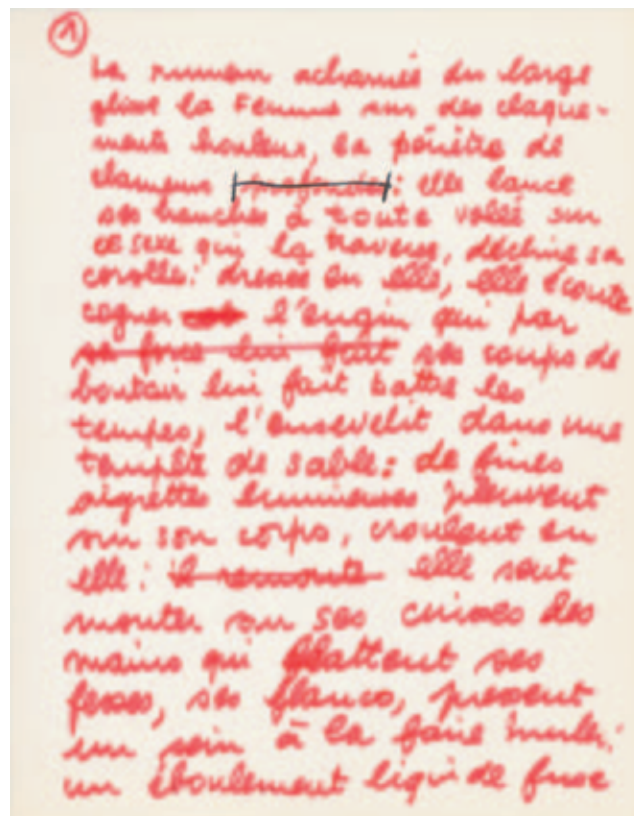 ①
La rumeur acharnée du large
glisse la Femme sur des claque-
ments houleux, la pénètre de
clameurs profondes : elle lance
ses hanches à toute volée sur
ce sexe qui la traverse, déchire sa
corolle : dressé en elle, elle écoute
cogner l'engin qui par
sa force lui fait ses coups de
boutoir lui fait battre les
tempes, l'ensevelit dans une
tempête de sable : de fines
aigrettes lumineuses pleuvent
sur son corps, croulent en
elle : il remonte elle sent
monter sur ses cuisses des
mains qui flattent ses
fesses, ses flancs, pressent
un sein à la faire hurler :
un éboulement liquide fuse